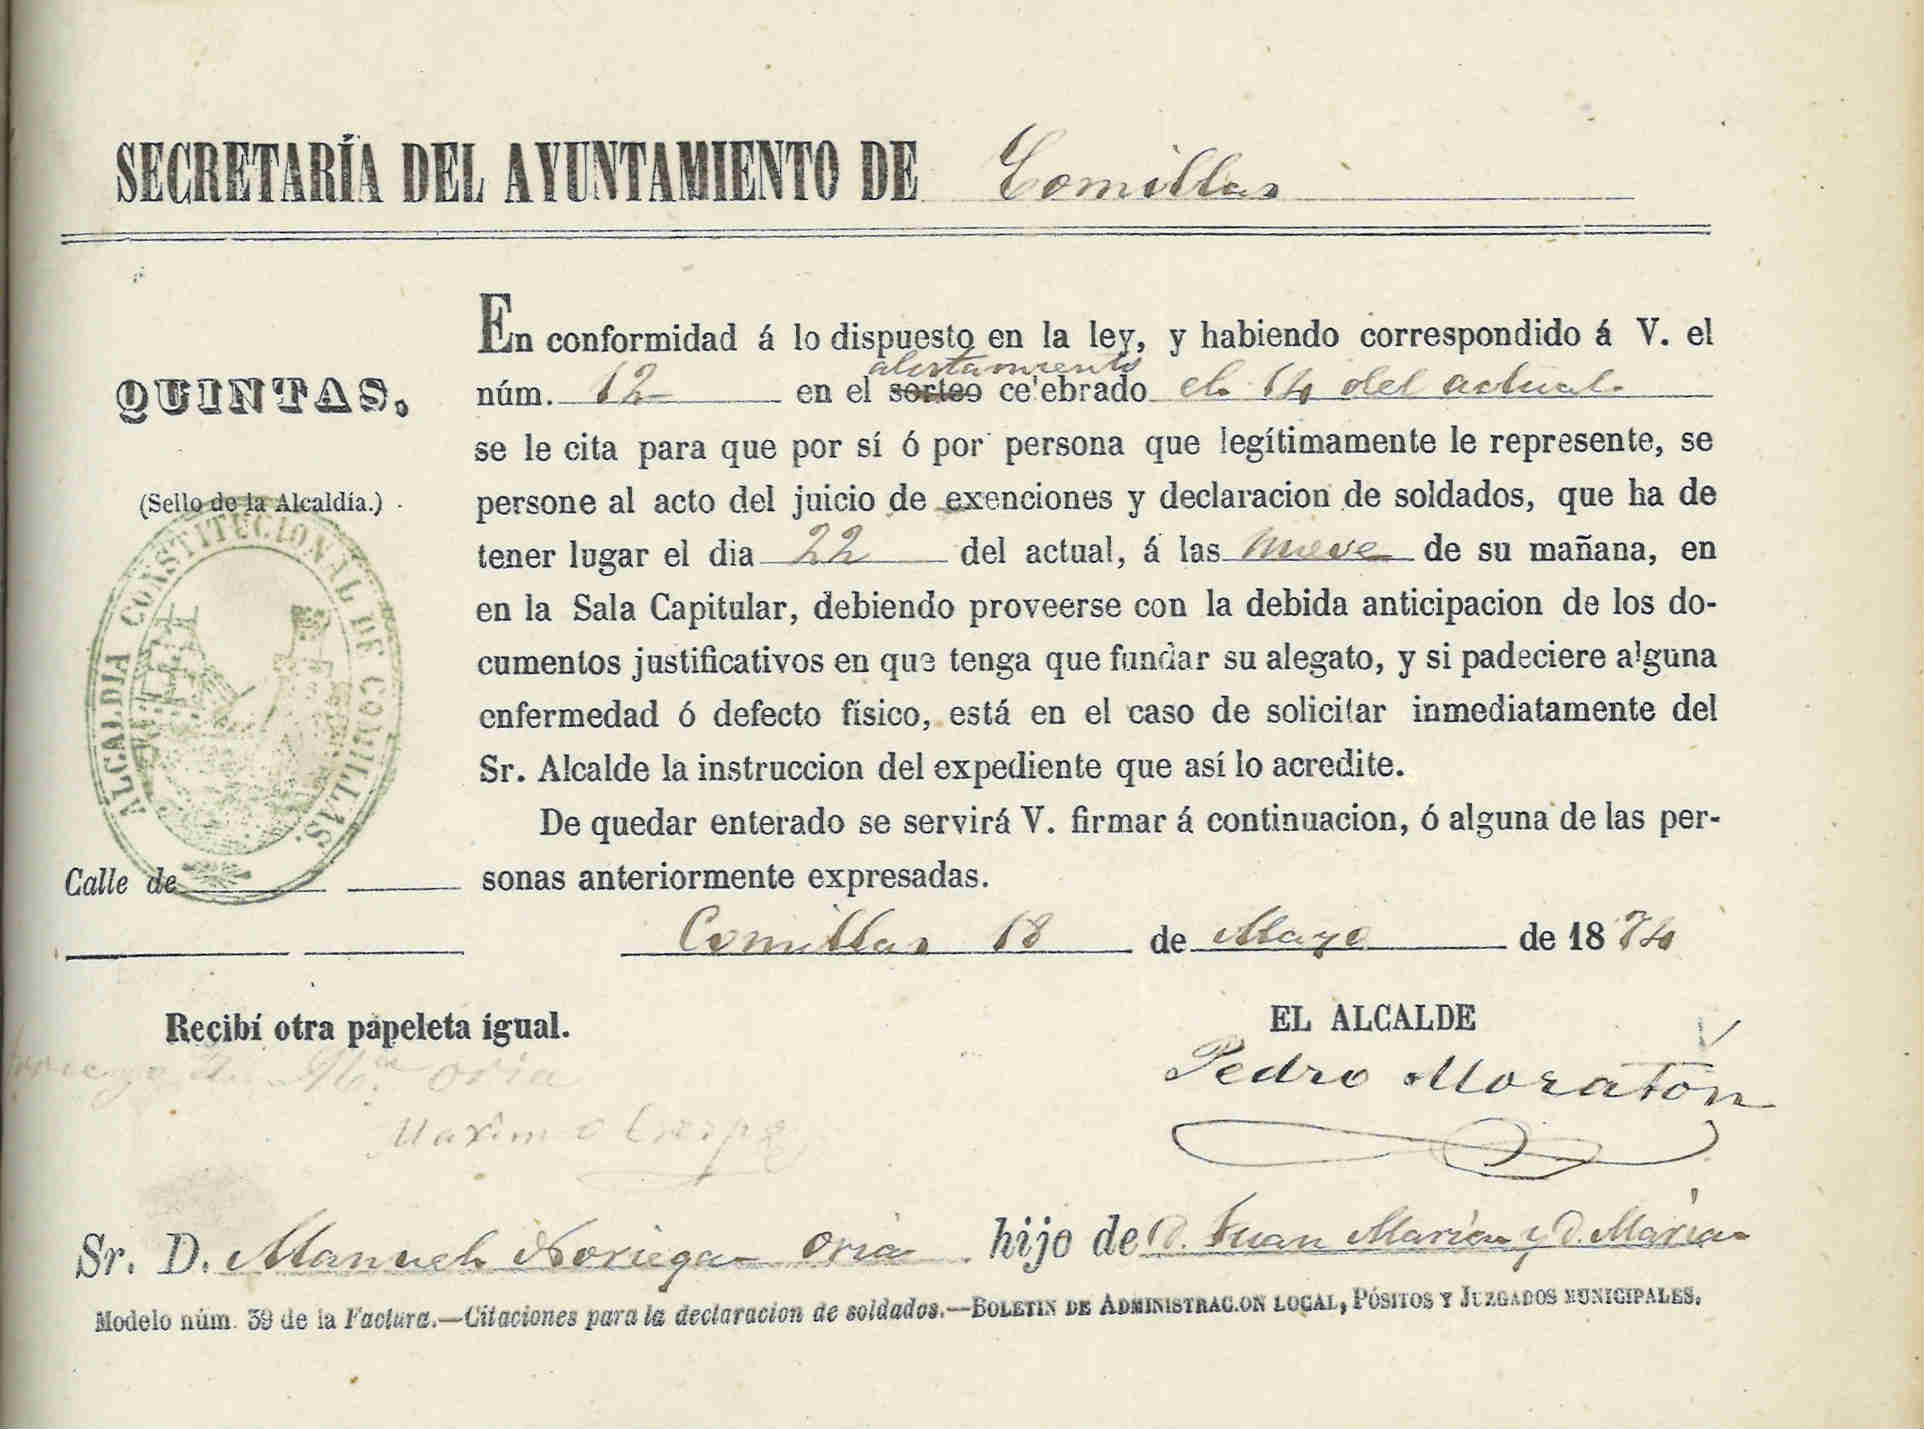 SECRETARÍA DEL AYUNTAMIENTO DE Comillas
QUINTAS.
(Sello de la Alcaldía.)
ALCALDIA CONSTITUCIONAL DE COMILLAS.
Calle de
En conformidad á lo dispuesto en la ley, y habiendo correspondido á V. el
alistamiento
núm. 12 en el sorteo celebrado el 14 del actual.
se le cita para que por sí ó por persona que legítimamente le represente, se
persone al acto del juicio de exenciones y declaracion de soldados, que ha de
tener lugar el dia 22 del actual, á las nueve de su mañana, en
en la Sala Capitular, debiendo proveerse con la debida anticipacion de los do-
cumentos justificativos en que tenga que fundar su alegato, y si padeciere alguna
enfermedad ó defecto físico, está en el caso de solicitar inmediatamente del
Sr. Alcalde la instruccion del expediente que así lo acredite.
De quedar enterado se servirá V. firmar á continuacion, ó alguna de las per-
sonas anteriormente expresadas.
Comillas 18 de Mayo de 1874
Recibí otra papeleta igual.
EL ALCALDE
Pedro Moratón
Oria
Maximo Crespo
Sr. D. Manuel Noriega Oria hijo de D. Juan María y D. María
Modelo núm. 39 de la Factura.—Citaciones para la declaracion de soldados.—BOLETIN DE ADMINISTRACION LOCAL, PÓSITOS Y JUZGADOS MUNICIPALES.